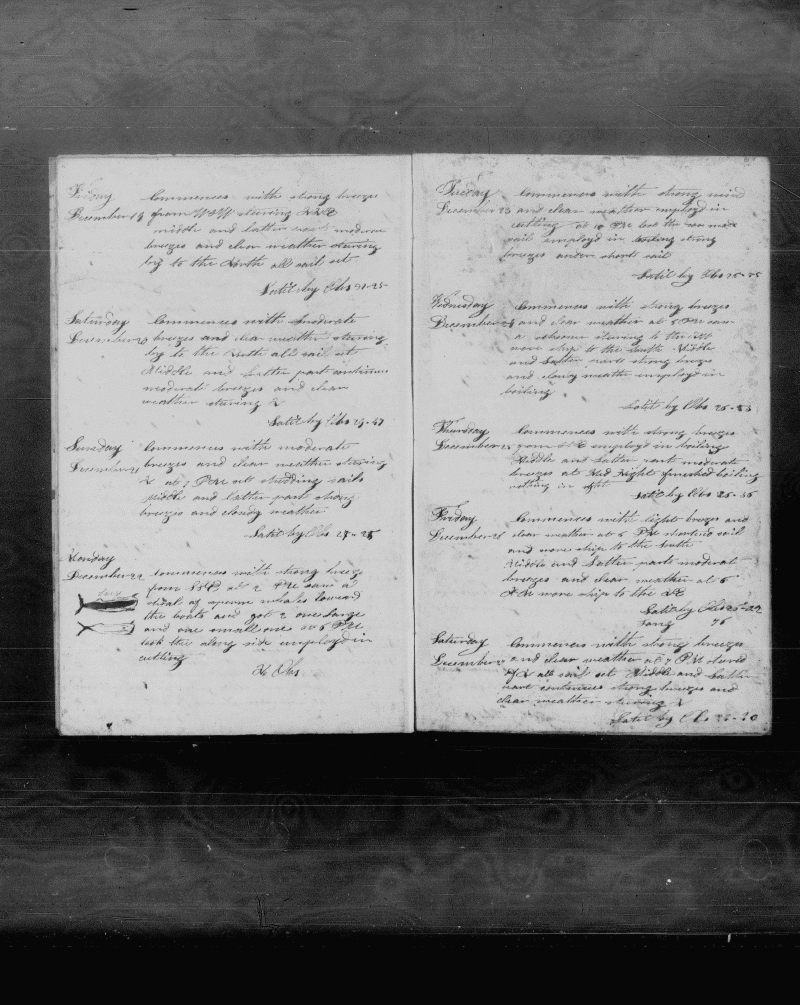 Friday Commences with strong breeze
December 19 from WSW steering
middle and latter part moderate
breezes and clear weather steering
by to the North all sail set
Latit by Obs 31-25
Saturday Commences with moderate
December 20 breezes and clear weather steering
by to the North all sail set
Middle and Latter part continues
moderate breezes and clear
weather steering N
Latit by Obs 29-47
Sunday Commences with moderate
December 21 breezes and clear weather steering
N at 7 PM set studding sails
middle and latter part strong
breezes and cloudy weather
Latit by Obs 27-25
Monday
December 22 commences with strong breeze
from at 2 PM saw a
of sperm whales lowerd
the boats and got 2 one large
and one small one at 6 PM
took the along side employd in
cutting
No Obs
Tuesday Commences with strong wind
December 23 and clear weather employd in
cutting at 10 PM
sail employd in strong
breezes under short sail
Latit by Obs 25-25
Wednesday Commences with strong breezes
December 24 and clear weather at 5 PM saw
a schooner steering to the
wore ship to the South Middle
and Latter parts strong breeze
and cloudy weather employd in
boiling
Latit by Obs 25-53
Thursday Commences with strong breezes
December 25 from employd in boiling
Middle and Latter part moderate
breezes at Mid Night finished boiling
nothing in sight
Latit by Obs 25-35
Friday Commences with light breeze and
December 26 clear weather at 5 PM shortend sail
and wore ship to the South
Middle and Latter parts moderat
breezes and clear weather at 5
AM wore ship to the
Latit by Obs 25-22
Long 76
Saturday Commences with strong breezes
December 27 and clear weather at 7 PM
all sail set Middle and Latter
part continues strong breezes and
clear weather steering N
Latit by Obs